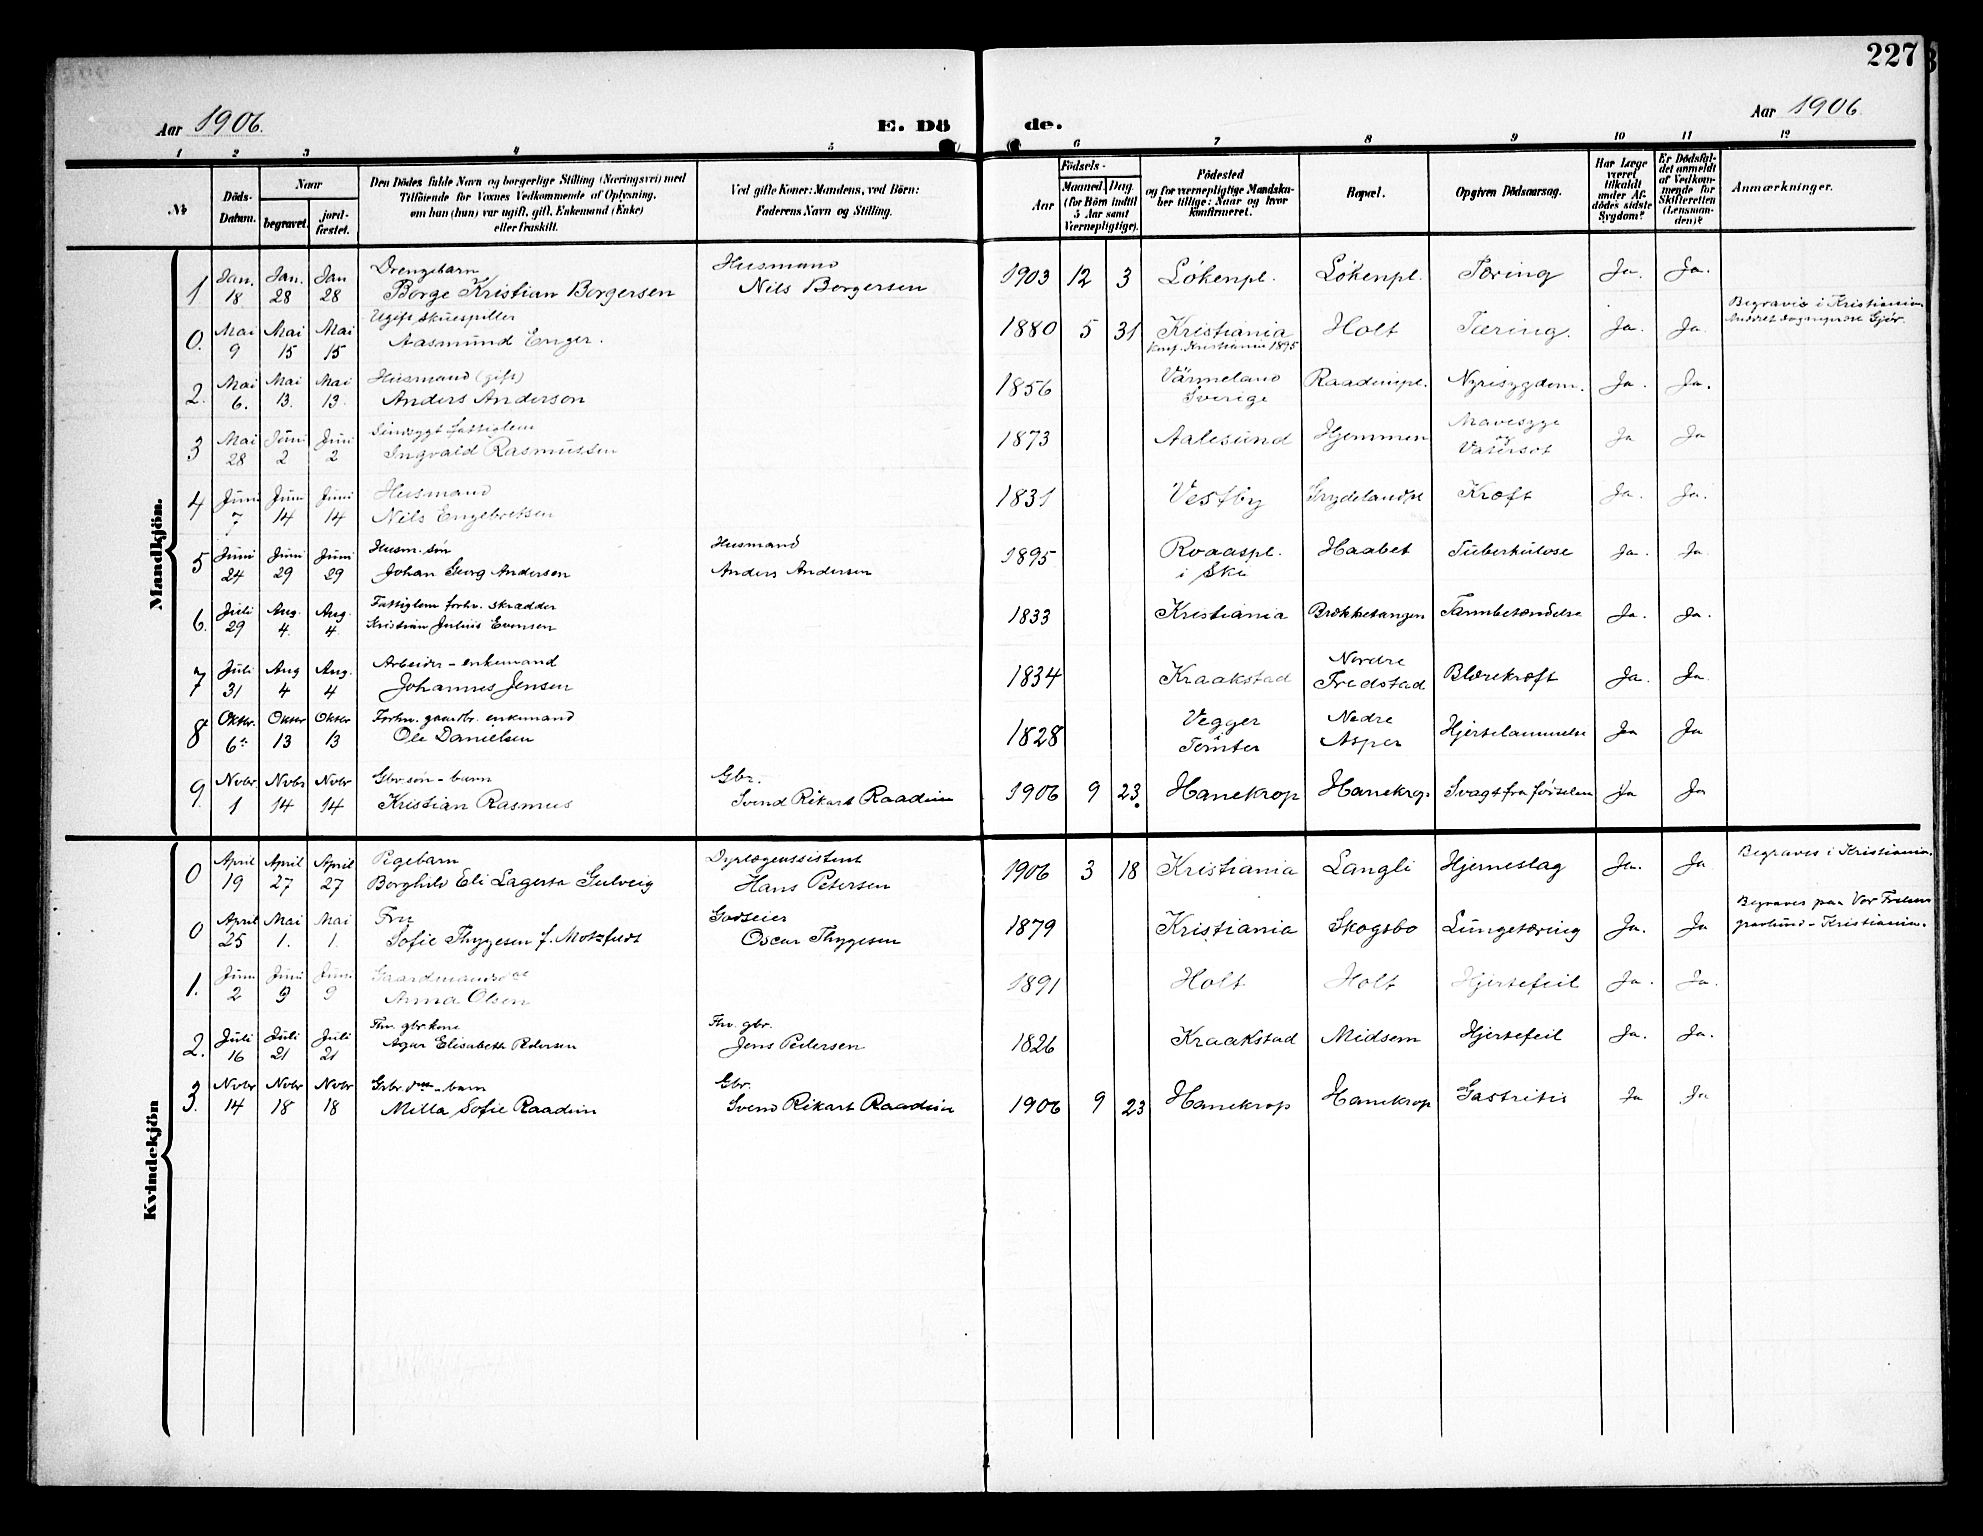 227
Aar 1906.
E. Döde.
Aar 1906
1 2 3 4 5 6 7 8 9 10 11 12
No
Döds-Datum.
Naar
begravet.
jord-fæstet.
Den Dödes fulde Navn og borgerlige Stilling (Næringsvei) med
Tilföiende for Voxnes Vedkommende af Oplysning,
om han (hun) var ugift, gift, Enkemand (Enke)
eller fraskilt.
Ved gifte Koner: Mandens, ved Börn:
Faderens Navn og Stilling.
Födsels-
Aar
Maaned Dag
(for Börn indtil
5 Aar samt
Værnepligtige).
Födested
og for værnepligtige Mandska-
ber tillige: Naar og hvor
konfirmeret.
Bopæl.
Opgiven Dödsaarsag.
Har Læge
været
tilkaldt
under Af-
dödes sidste
Sygdom?
Er Dödsfal-
det anmeldt
af Vedkom-
mende for
Skifteretten
(Lensman-
den)?
Anmærkninger.
Mandkjön.
1 Jan. 18 Jan. 28 Jan 28 Drengebarn Borge Kristian Borgersen Husmand Nils Borgersen 1903 12 3 Lökenpl. Lökenpl. Tæring Ja. Ja.
0. Mai 9 Mai 15 Mai 15 Ugift skuespiller Aasmund Enger. 1880 5 31 Kristiania Konf. Kristiania 1895 Holt Tæring. Ja. Ja. Begravis i Kristiania
2. Mai 6. Mai 13. Mai 13. Husmand (gift) Anders Andersen 1856 Värmeland Sverige Raadimpl. Nyresygdom. Ja. Ja.
3 Mai 28 Juni 2 Juni 2 Sindsygt fattiglem Ingvald Rasmussen 1873 Aalesund Hjemmen Mavesyge og Vatersot Ja Ja
4 Juni 7 Juni 14 Juni 14 Husmand Nils Engebretsen 1831 Vestby Grydelandpl Kræft Ja. Ja.
5 Juni 24 Juni 29 Juni 29 Husm. sön Johan Georg Andersen Husmand Anders Andersen 1895 Roaaspl. i Ski Haabet Tuberkulose Ja. Ja.
6. Juli 29 Aug. 4. Aug. 4. Fattiglem forhv. skrædder Kristian Julius Evensen 1833 Kristiania Brækketangen Tarmbetændelse Ja. Ja.
7 Juli 31 Aug 4 Aug. 4 Arbeider - enkemand Johannes Jensen 1834 Kraakstad Nordre Fredstad Blærekræft Ja. Ja.
8 Oktbr. 6te Oktbr 13 Oktbr 13 Forhv. gaardbr. enkemand Ole Danielsen 1828 Vegger Tomter Nedre Asper Hjertelammelse Ja Ja
9. Nvbr. 1 Nvbr 14 Nvbr 14 Gbr sön - barn Kristian Rasmus Gbr. Svend Rikart Raadim 1906 9 23. Hanekrop Hanekrop Svagt fra födselen Ja Ja
Kvindekjön
0 April 19 April 27 April 27 Pigebarn Borghild Eli Lagerta Gulveig Dyrlægeassistent Hans Petersen 1906 3 18 Kristiania Langli Hjerneslag Ja. Ja Begraves i Kristiania.
0 April 25 Mai 1. Mai 1. Fru Sofie Thygesen f. Motzfeldt Godseier Oscar Thygesen 1879 Kristiania Skogsbo Lungetæring Ja. Ja Begraves paa Vor Frelsers gravlund - Kristiania.
1. Juni 2 Juni 9 Juni 9 Gaardmandsdat Anna Olsen 1891 Holt Holt Hjertefeil Ja. Ja.
2. Juli 16 Juli 21 Juli 21 Fhv. gbr. kone Agar Elisabeth Pedersen Fhv. gbr. Jens Pedersen 1826 Kraakstad Midsem Hjertefeil Ja. Ja.
3. Nvbr 14 Nvbr 18 Nvbr 18 Gbr datt - barn Milla Sofie Raadim Gbr. Svend Rikart Raadim 1906 9 23 Hanekrop Hanekrop Gastritis Ja Ja